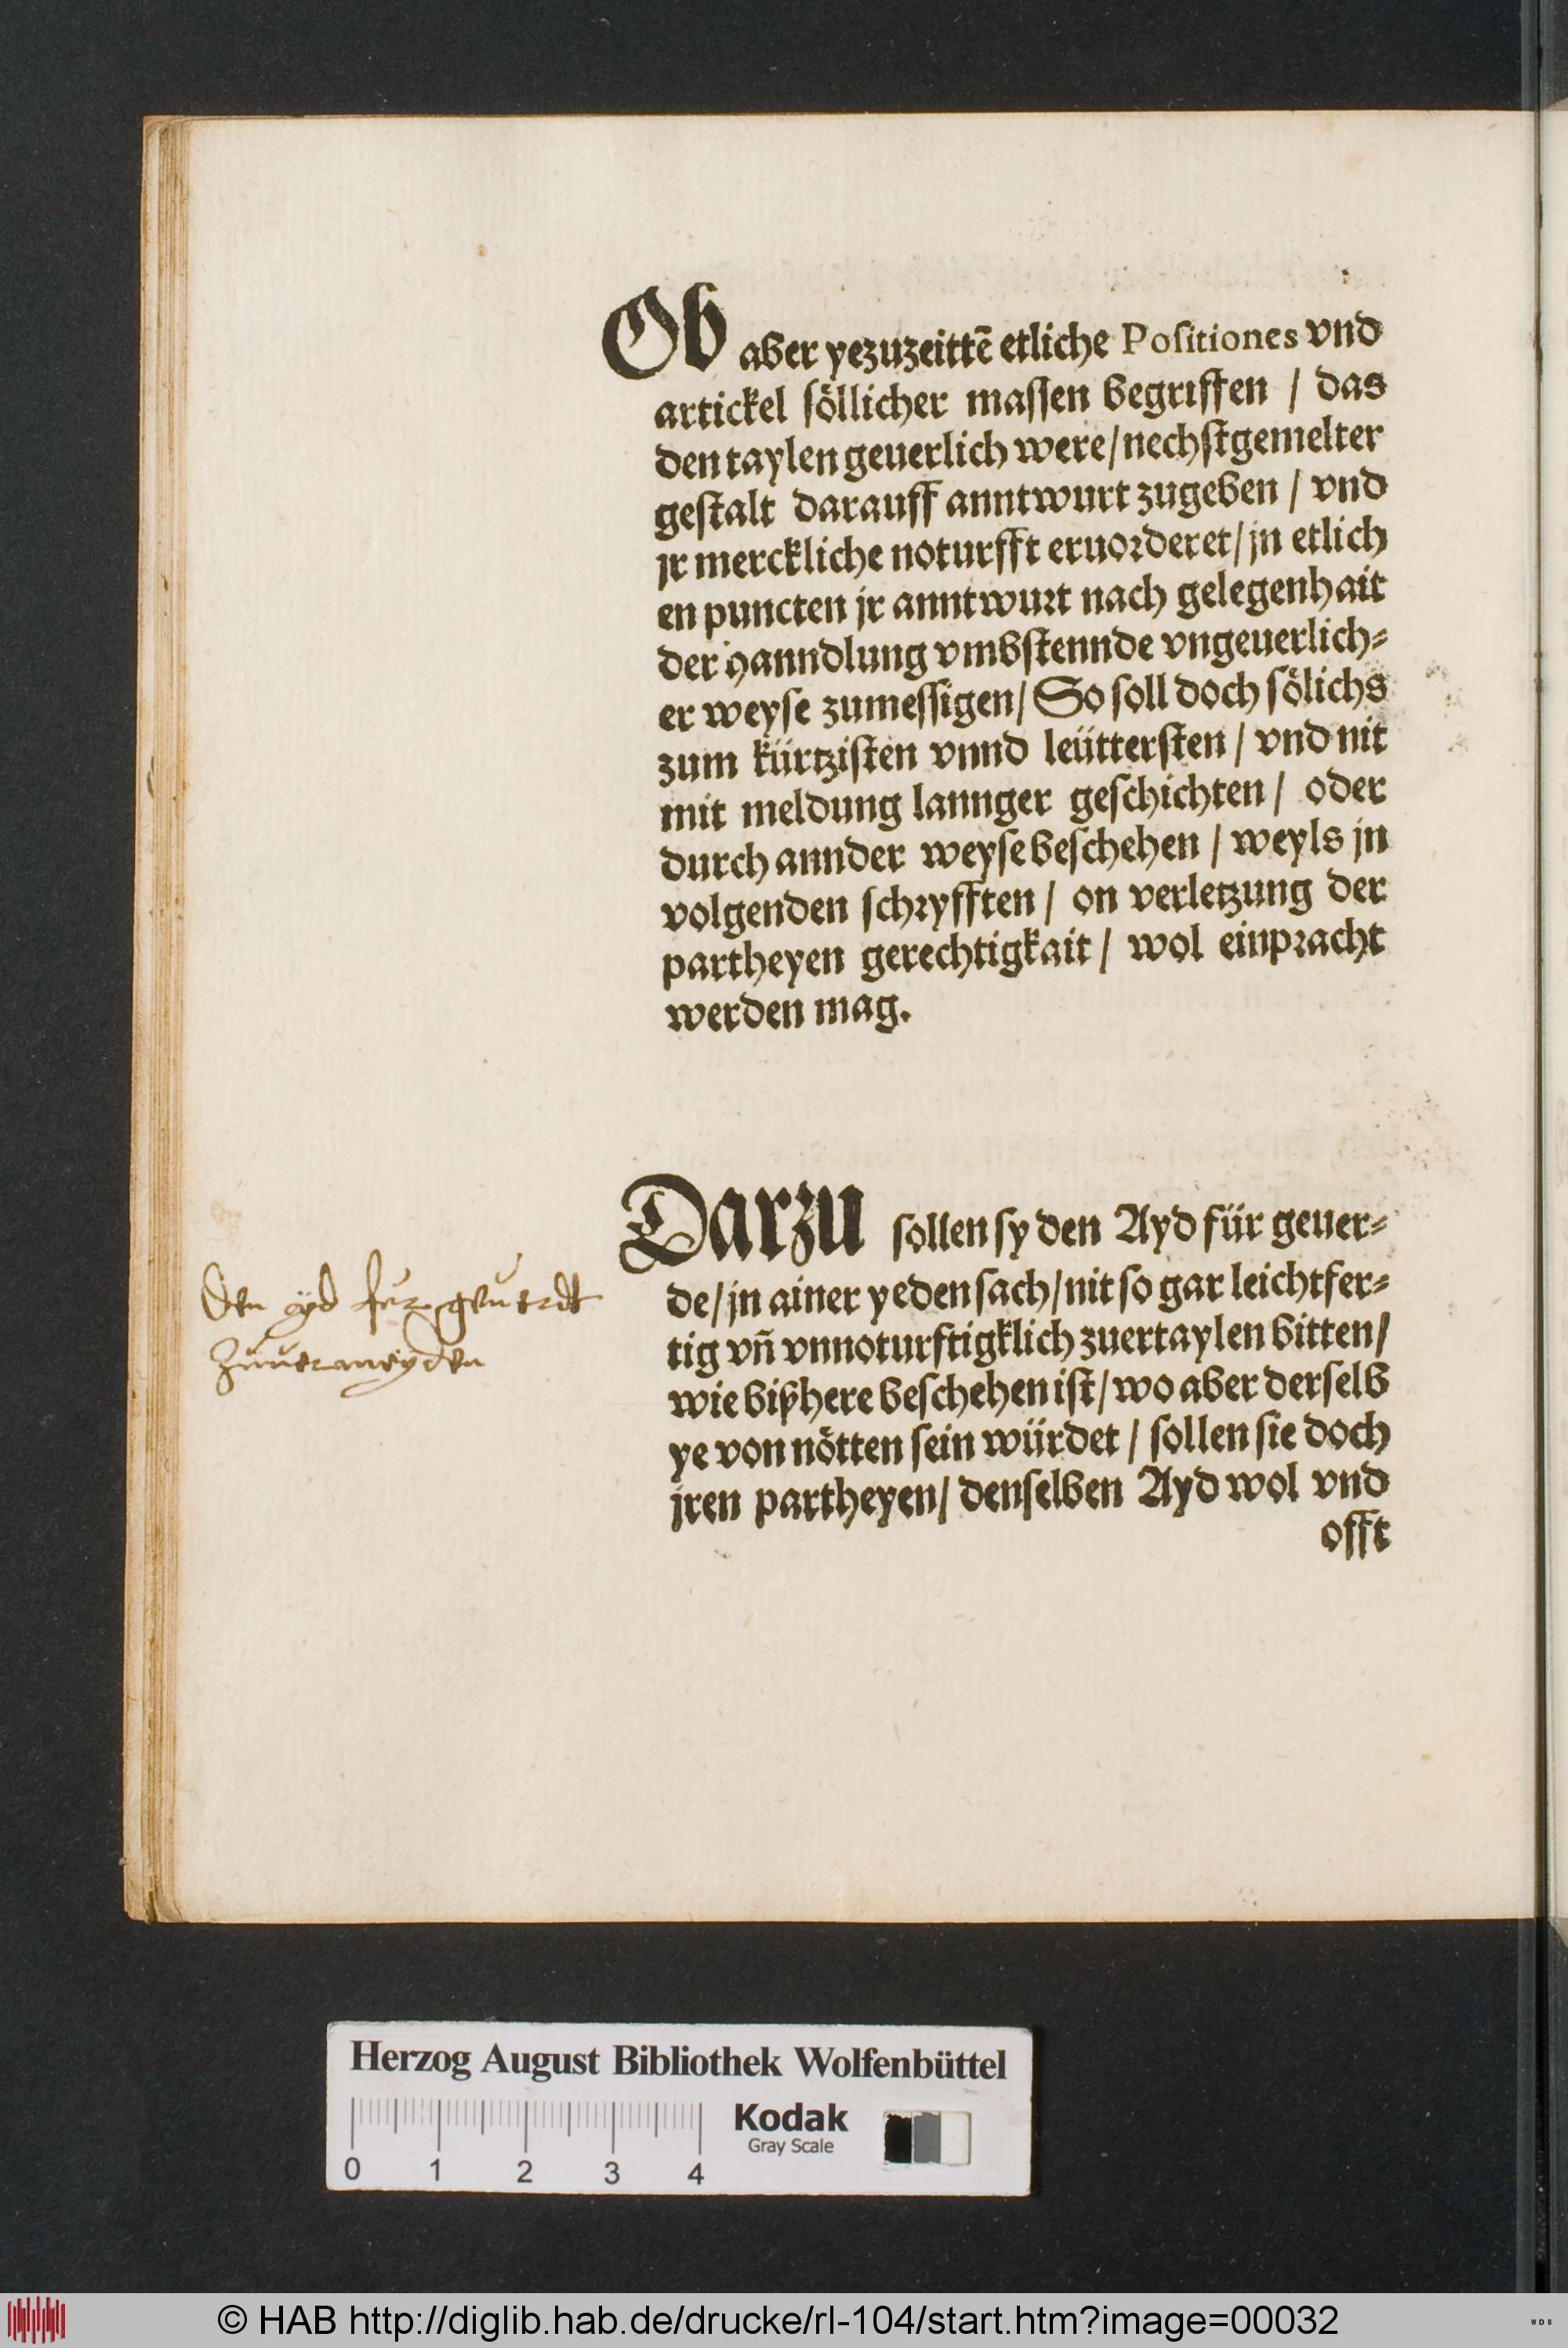 Ob aber yezuzeittē etliche Positiones vnd
artickel söllicher massen begriffen / das
den taylen geuerlich were / nechstgemelter
gestalt darauff anntwurt zugeben / vnd
jr merckliche noturfft eruorderet / jn etlich
en puncten jr anntwurt nach gelegenhait
der hanndlung vmbstennde vngeuerlich⸗
er weyse zumessigen / So soll doch sölichs
zum kürtzisten vnnd leüttersten / vnd nit
mit meldung lannger geschichten / oder
durch annder weyse beschehen / weyls jn
volgenden schryfften / on verletzung der
partheyen gerechtigkait / wol einpracht
werden mag.
Darzu sollen sy den Ayd für geuer⸗
de / jn ainer yeden sach / nit so gar leichtfer⸗
tig vñ vnnoturftigklich zuertaylen bitten /
wie bißhere beschehen ist / wo aber derselb
ye von nötten sein würdet / sollen sie doch
jren partheyen / denselben Ayd wol vnd
offt
Den ayd fur geuerdt
Zuuermeyden
Herzog August Bibliothek Wolfenbüttel
Kodak
Gray Scale
0 1 2 3 4
© HAB http://diglib.hab.de/drucke/rl-104/start.htm?image=00032
WDB